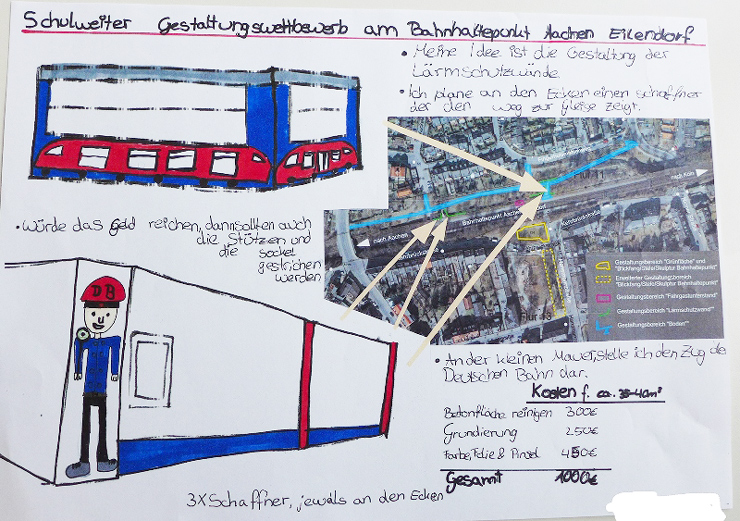 Schulweiter Gestaltungswettbewerb am Bahnhaltepunkt Aachen Eilendorf
• Meine Idee ist die Gestaltung der
Lärmschutzwände.
• Ich plane an den Ecken einen schaffner
der den weg zur gleise zeigt.
nach Köln
Bahnhaltepunkt Aachen
nach Aachen
Flur 48
Gestaltungsbereich "Grünfläche" und
"Blickfang/Stele/Skulptur Bahnhaltepunkt"
Erweiterter Gestaltungsbereich
"Blickfang/Stele/Skulptur Bahnhaltepunkt"
Gestaltungsbereich "Fahrgastunterstand"
Gestaltungsbereich "Lärmschutzwand"
Gestaltungsbereich "Boden"
• würde das geld reichen, dann sollten auch
die Stützen und
die sockel
gestrichen
werden
DB
• An der kleinen Mauer, stelle ich den Zug der
Deutschen Bahn dar.
Kosten f. ca. 35-40m²
Betonfläche reinigen 300€
Grundierung 250€
Farbe, Folie & Pinsel 450€
Gesamt 1000€
3X Schaffner, jeweils an den Ecken